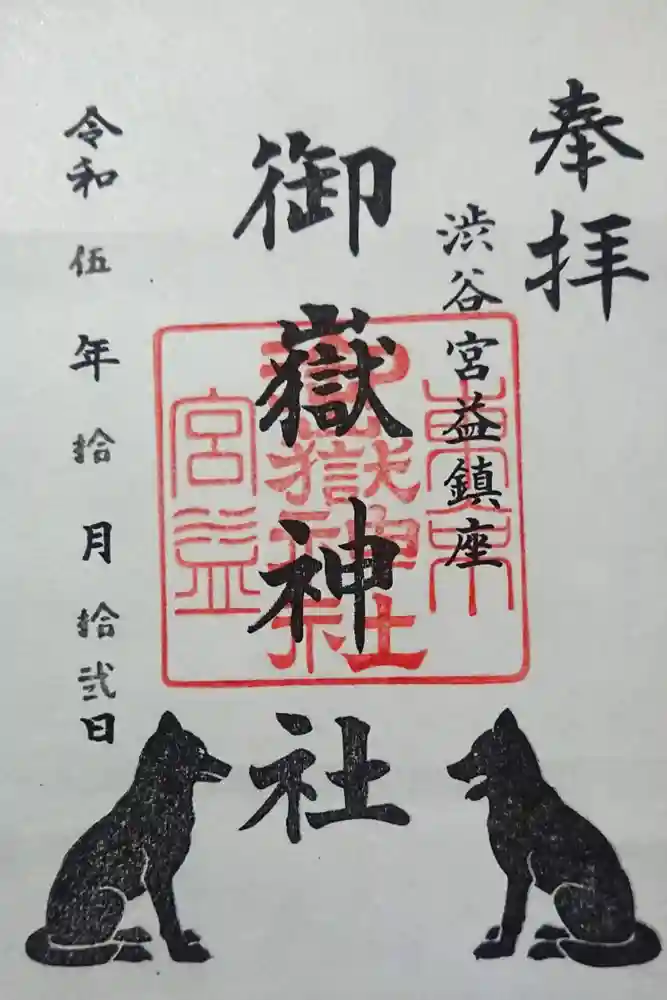 奉拝
渋谷宮益鎮座
御嶽神社
令和 伍 年 拾 月 拾弐日
東京
御嶽神社
宮益